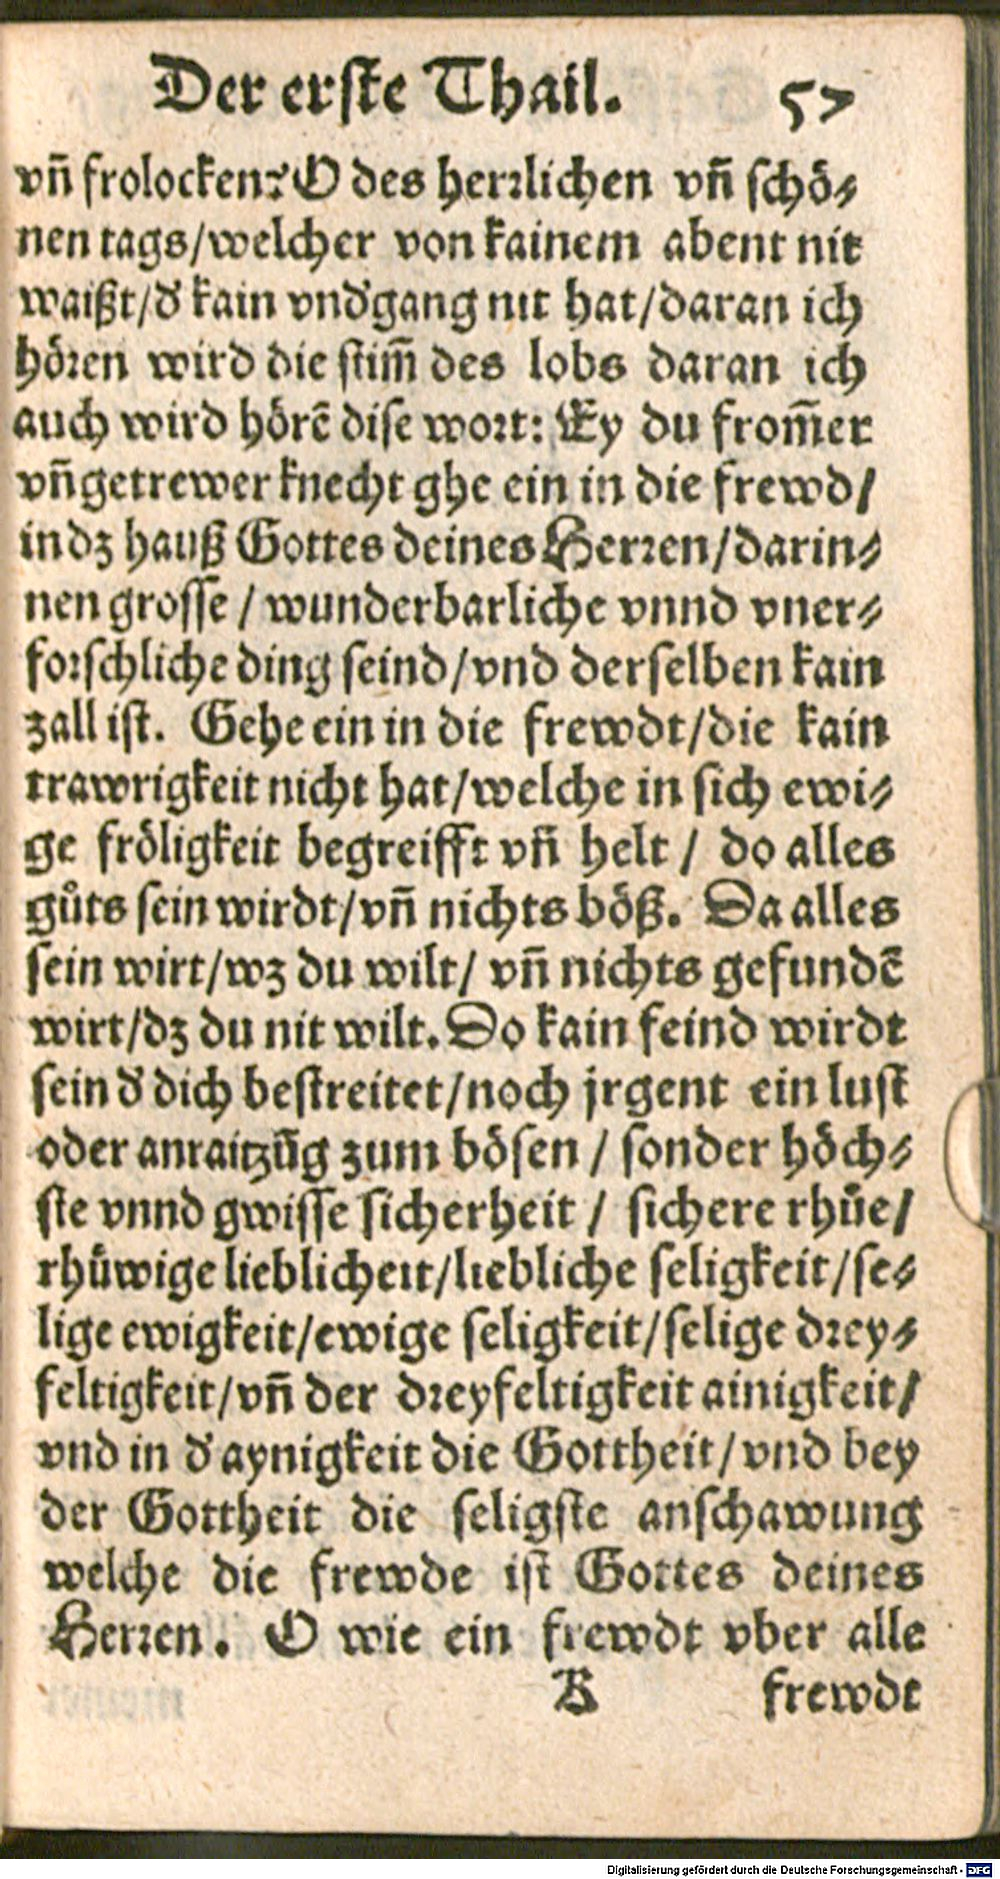 Der erste Thail. 57
vñ frolocken? O des herrlichen vñ schö-
nen tags/welcher von kainem abent nit
waißt/d' kain vnd'gang nit hat/daran ich
hören wird die stim̃ des lobs daran ich
auch wird hörẽ dise wort: Ey du from̃er
vñ getrewer knecht ghe ein in die frewd/
in dz hauß Gottes deines Herren/darin-
nen grosse / wunderbarliche vnnd vner-
forschliche ding seind/vnd derselben kain
zall ist. Gehe ein in die frewdt/die kain
trawrigkeit nicht hat/welche in sich ewi-
ge fröligkeit begreifft vñ helt / do alles
gůts sein wirdt/vñ nichts böß. Da alles
sein wirt/wz du wilt/ vñ nichts gefundẽ
wirt/dz du nit wilt. Do kain feind wirdt
sein d' dich bestreitet/noch jrgent ein lust
oder anraitzũg zum bösen / sonder höch-
ste vnnd gwisse sicherheit / sichere rhůe/
rhůwige lieblicheit/liebliche seligkeit/se-
lige ewigkeit/ewige seligkeit/selige drey-
feltigkeit/vñ der dreyfeltigkeit ainigkeit/
vnd in d' aynigkeit die Gottheit/vnd bey
der Gottheit die seligste anschawung
welche die frewde ist Gottes deines
Herren. O wie ein frewdt vber alle
K frewdt
Digitalisierung gefördert durch die Deutsche Forschungsgemeinschaft - DFG